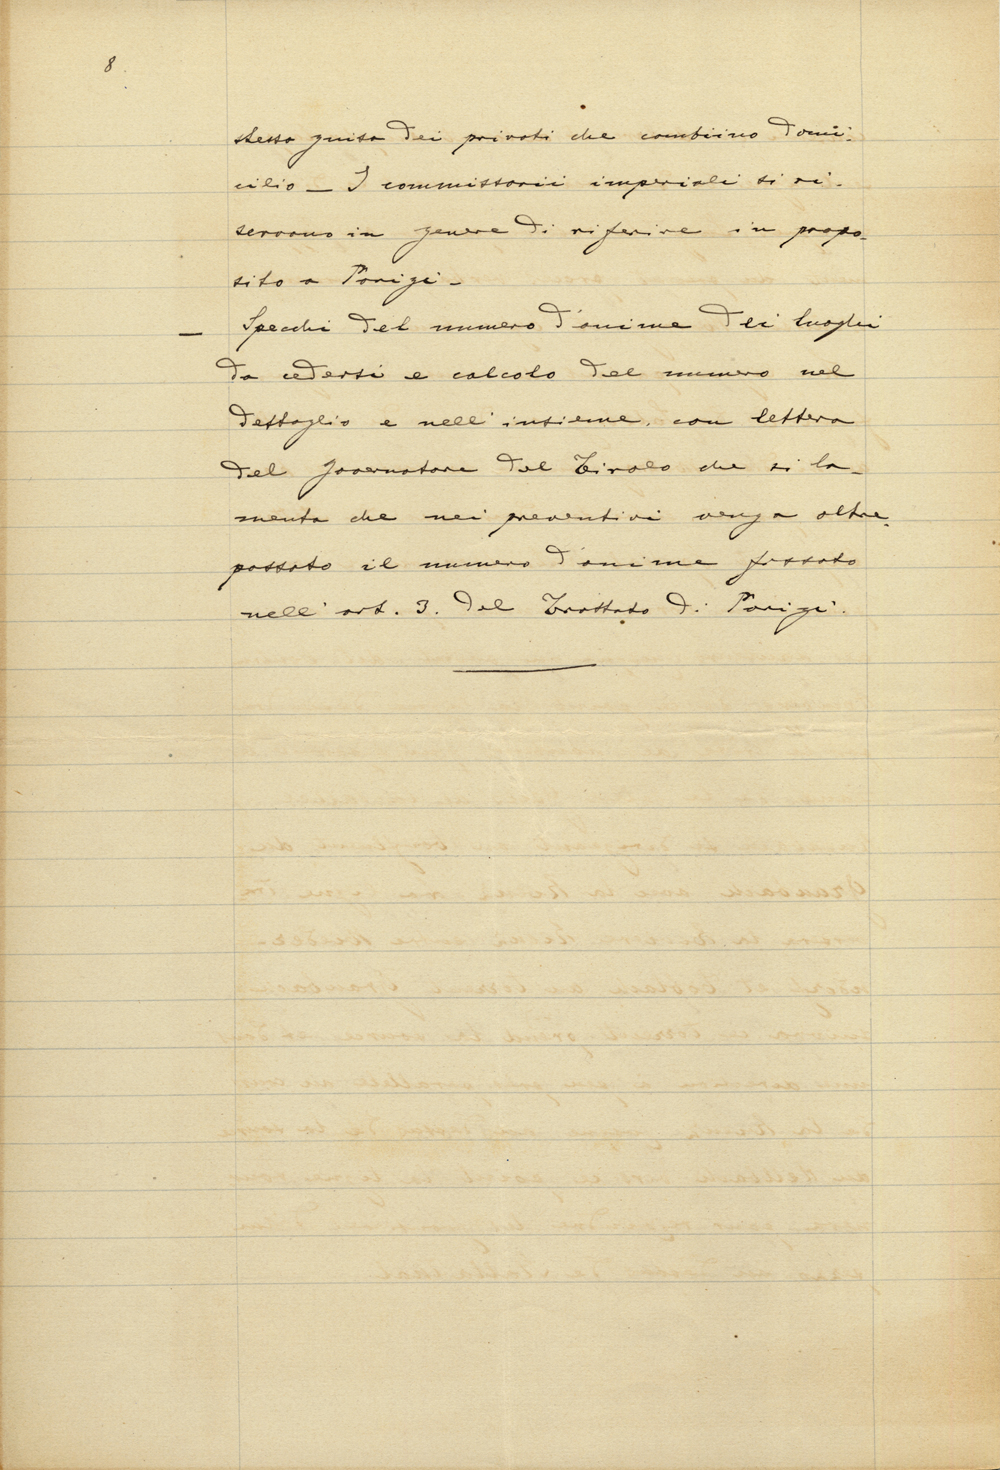 8.
stessa guisa dei privati che cambiino domi-
cilio — I commissarii imperiali si ri-
servano in genere di riferire in propo-
sito a Parigi —
— Specchi del numero d'anime dei luoghi
da cedersi e calcolo del numero nel
dettaglio e nell'insieme, con lettera
del governatore del Tirolo che si la-
menta che nei preventivi venga oltre-
passato il numero d'anime fissato
nell'art. 3. del Trattato di Parigi.